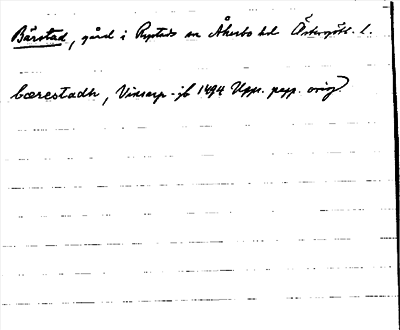 Bärstad, gård i Rystads sn Åkerbo hd Östergötl. l.
bærestadh, Vinsarp-jb 1494 Upps. papp. orig.